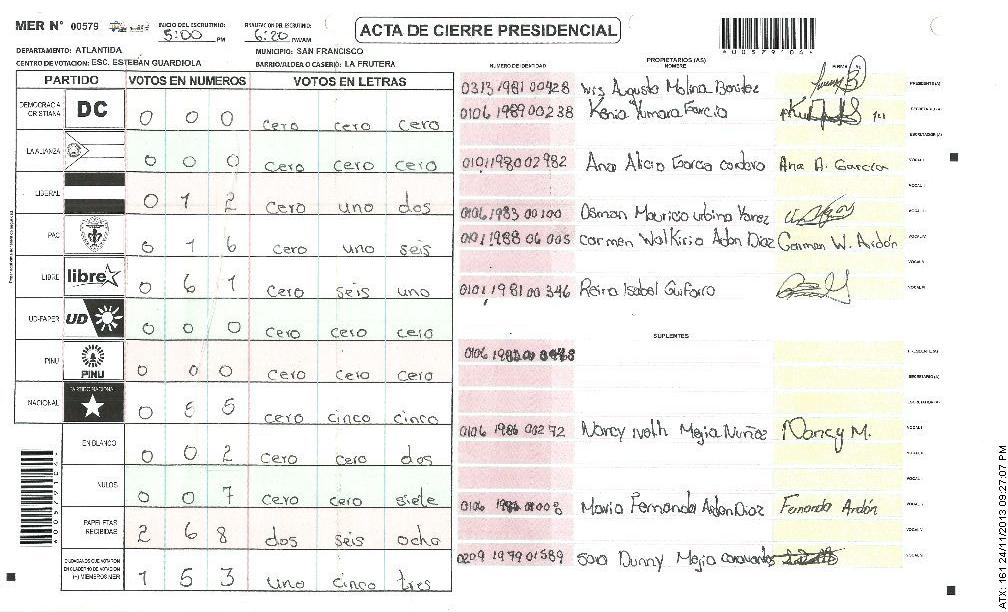 MER N° 00579 INICIO DEL ESCRUTINIO: 5:00 PM FINALIZACION DEL ESCRUTINIO: 6:20 PM/AM ACTA DE CIERRE PRESIDENCIAL
DEPARTAMENTO: ATLANTIDA MUNICIPIO: SAN FRANCISCO
CENTRO DE VOTACION: ESC. ESTEBAN GUARDIOLA BARRIO/ALDEA O CASERIO: LA FRUTERA
PARTIDO VOTOS EN NUMEROS VOTOS EN LETRAS
DEMOCRACIA CRISTIANA DC 0 0 0 cero cero cero
LA ALIANZA 0 0 0 cero cero cero
LIBERAL 0 1 2 cero uno dos
PAC 0 1 6 cero uno seis
LIBRE libre 0 6 1 cero seis uno
UD-FAPER UD 0 0 0 cero cero cero
PINU PINU 0 0 0 cero cero cero
NACIONAL PARTIDO NACIONAL 0 5 5 cero cinco cinco
EN BLANCO 0 0 2 cero cero dos
NULOS 0 0 7 cero cero siete
PAPELETAS RECIBIDAS 2 6 8 dos seis ocho
CIUDADANOS QUE VOTARON EN CUADERNO DE VOTACION (+) MIEMBROS MER 1 5 3 uno cinco tres
PROPIETARIOS (AS)
NUMERO DE IDENTIDAD NOMBRE FIRMA
0313 1981 00428 Luis Augusto Molina Benitez PRESIDENTE (A)
0106 1989 00238 Kenia Yumara Garcia SECRETARIO (A)
SECRETARIO (A)
0101 1980 02982 Ana Alicia Garcia cordero Ana A. Garcia VOCAL I
0106 1983 00100 Osman Mauricio urbina Yanez
0101 1988 06 005 carmen Walkiria Ardon Diaz Carman W. Ardón
0101 1981 00 346 Reina Isabel Guifarro
SUPLENTES
PRESIDENTE (A)
SECRETARIO (A)
0106 1986 00272 Nancy Iveth Mejia Nuñez Nancy M.
0106 Maria Fernanda Ardon Diaz Fernanda Ardón
0209 1979 01589 Sara Dunny Mejia
ATX: 161 24/11/2013 09:27:07 PM